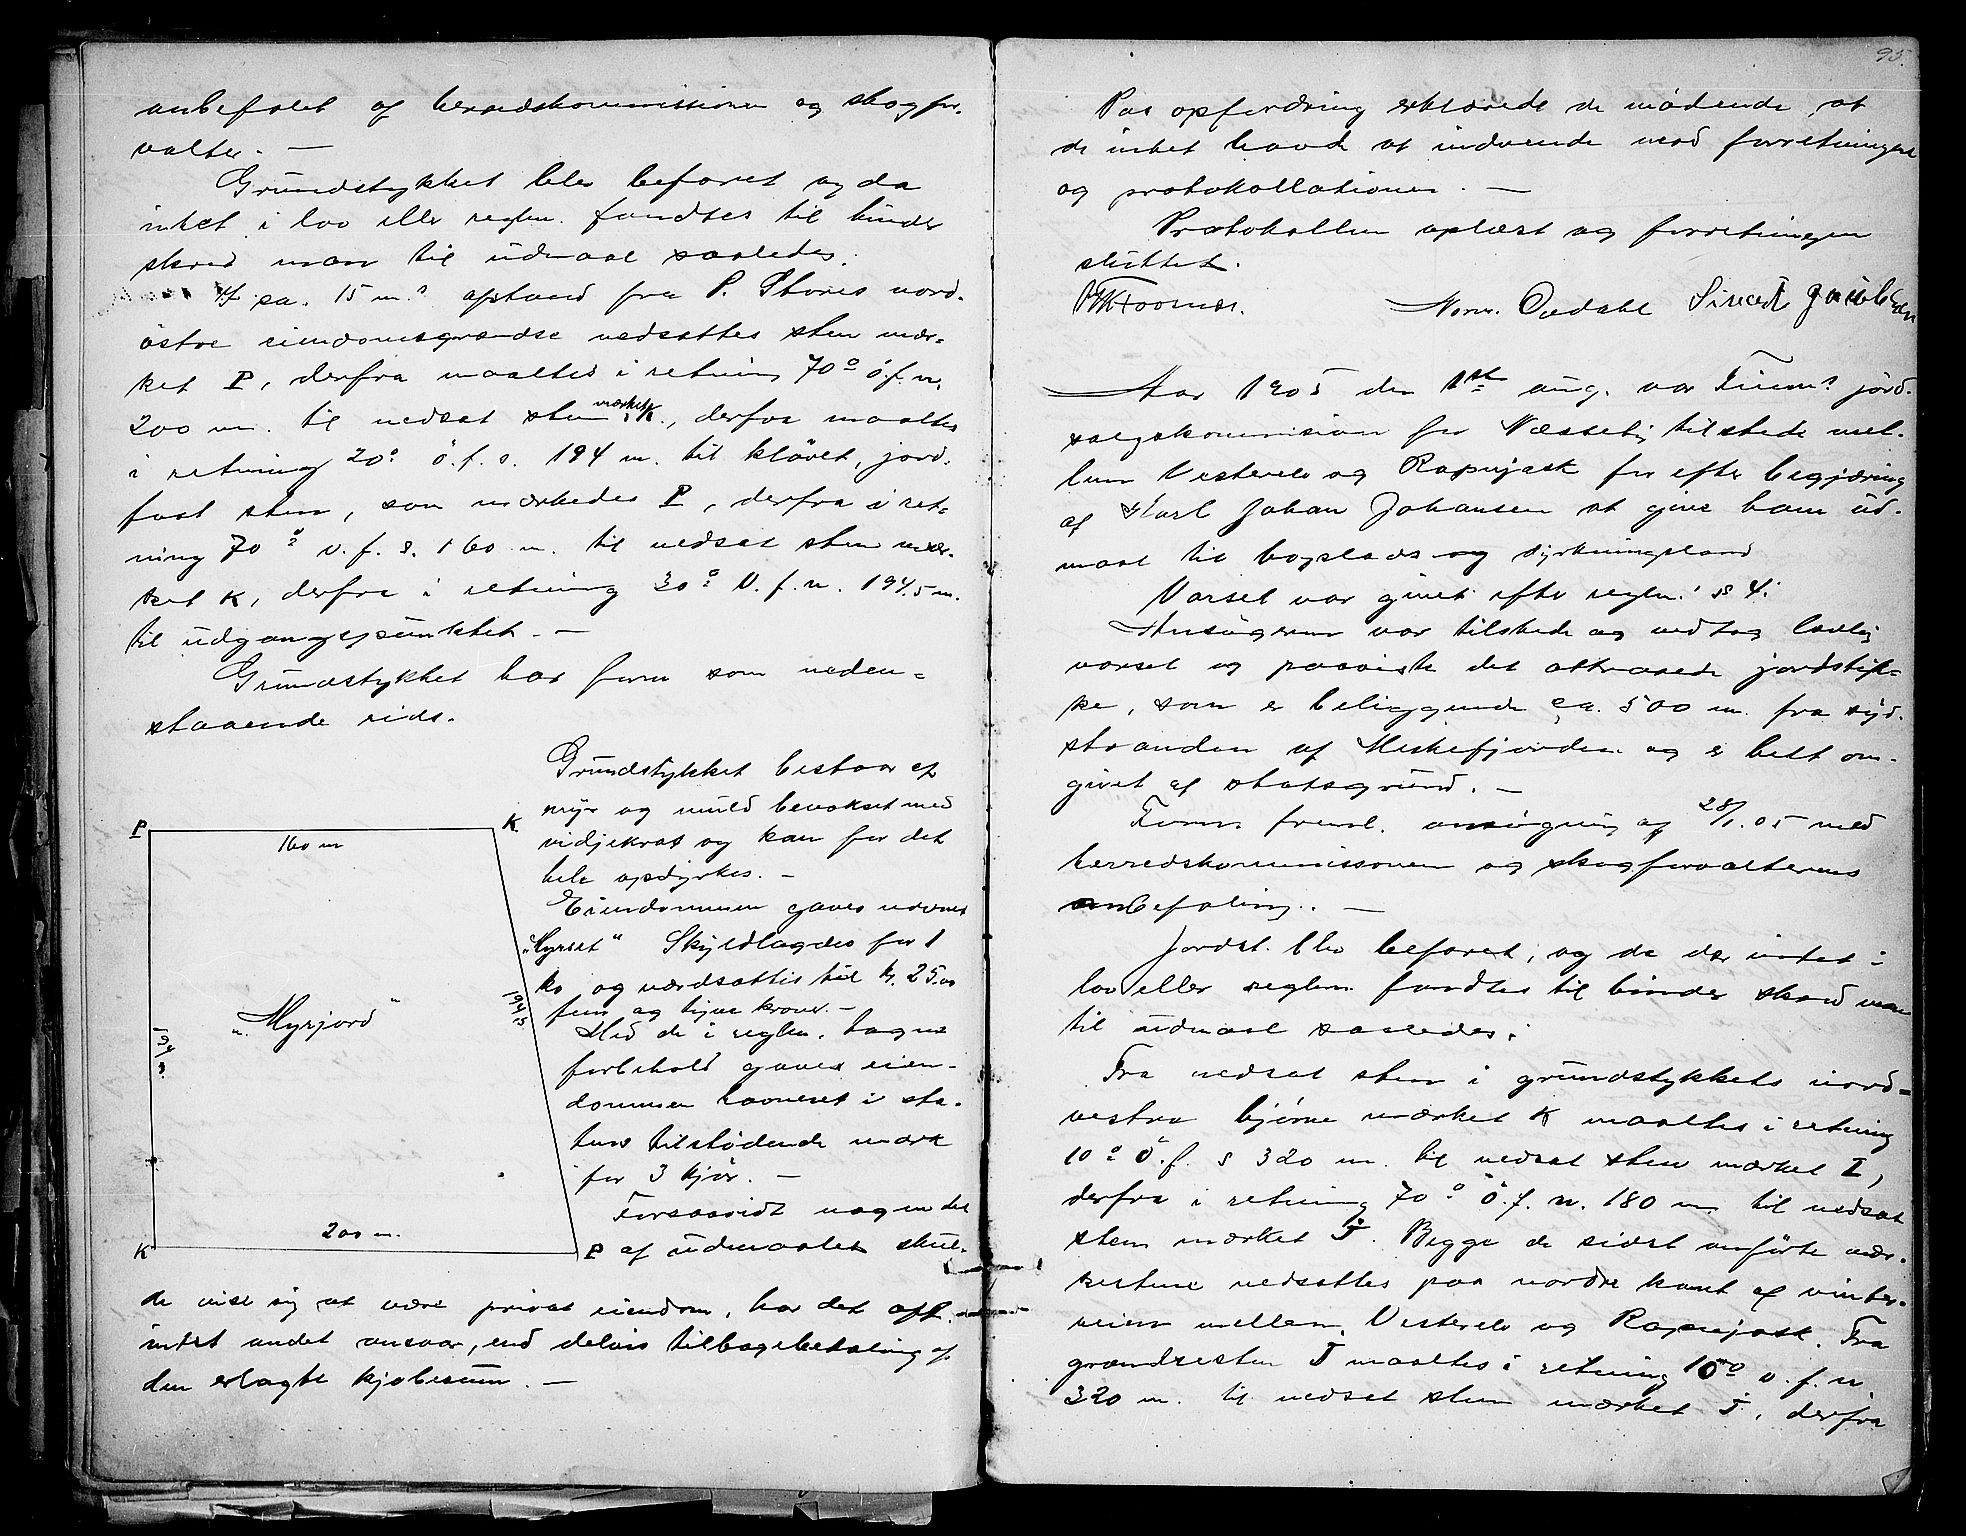 anbefalet af herredskommissionen og skogfor-
valter. —
Grundstykket blev befaret og da
intet i lov eller reglem. fandtes til hinder
skred man til udmaal saaledes:
I ca. 15 m.s afstand fra P. Stores nord-
østre eiendomsgrændse nedsattes sten mær-
ket P, derfra maaltes i retning 70° ö.f.n.
200 m. til nedsat sten mærket K., derfra maaltes
i retning 20° ö.f.s. 194 m. til kløvet, jord-
fast sten, som mærkedes P, derfra i ret-
ning 70° v.f.s. 160 m. til nedsat sten mær-
ket K, derfra i retning 30° v.f.n. 194.5 m.
til udgangspunktet. —
Grundstykket har form som neden-
staaende rids.
P
K
160 m
194.5
"Myrjord"
194
200 m.
K
P
Grundstykket bestaar af
myr og muld bevokset med
vidjekrat og kan for det
hele opdyrkes. —
Eiendommen gaves navnet
"Myrset" Skyldlagdes for 1
ko og værdsattes til kr. 25.00
fem og tyve kroner. —
Med de i reglem. tagne
forbehold gaves eien-
dommen havneret i sta-
tens tilstødende mark
for 3 kjør. —
Forsaavidt nogen del
af udmaalet skul-
de vise sig at være privat eiendom, har det off.
intet andet ansvar, end delvis tilbagebetaling af
den erlagte kjøbesum. —
95.
Paa opfordring erklærede de mødende, at
de intet havde at indvende mod forretningen
og protokollationen. —
Protokollen oplæst og forretningen
sluttet.
Norm. Oedahl Sivert Jacobsen
Aar 1905 den 1st aug. var Finm.s jord-
salgskommission for Næsseby tilstede mel-
lem Vesterelv og Rapnjask for efter begjæring
af Karl Johan Johansen at give ham ud-
maal til boplads og dyrkningsland
Varsel var givet efter reglem.s § 4.
Ansøgeren var tilstede og vedtog lovlig
varsel og paaviste det attraaede jordstyk-
ke, som er beliggende ca. 500 m. fra syd-
stranden af Meskefjorden og er helt om-
givet af statsgrund. —
Form. freml. ansøgning af 28/1.05 med
herredskommissionen og skogforvalterens
anbefaling. —
Jordst. blev befaret, og da der intet i
lov eller reglem. fandtes til hinder skred man
til udmaal saaledes:
Fra nedsat sten i grundstykkets nord-
vestre hjørne mærket K maaltes i retning
10° ö.f.s 320 m. til nedsat sten mærket I,
derfra i retning 70° ö.f.n. 180 m. til nedsat
sten mærket J. Begge de sidst anførte mær-
kestene nedsattes paa nordre kant af vinter-
veien mellem Vesterelv og Rapnjask. Fra
grændsesten J maaltes i retning 10° v.f.n.
320 m. til nedsat sten mærket J, derfra